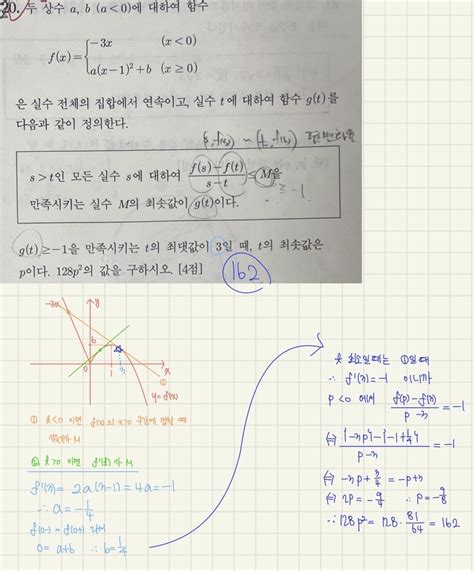 20. 두 상수 a, b (a<0)에 대하여 함수
f(x)= { -3x (x<0)
a(x-1)²+b (x≥0)
은 실수 전체의 집합에서 연속이고, 실수 t에 대하여 함수 g(t)를
다음과 같이 정의한다.
(s, f(s)) ~ (t, f(t))
s>t인 모든 실수 s에 대하여 (f(s)-f(t))/(s-t) ≤ M을
≥ -1
만족시키는 실수 M의 최솟값이 g(t)이다.
g(t)≥-1을 만족시키는 t의 최댓값이 3일 때, t의 최솟값은
p이다. 128p²의 값을 구하시오. [4점]
162
-3x
y
b
0
1
3
x
①
y=f(x)
① t<0 이면
M
② t>0 이면 f'(t)가 M
f'(3)= 2a(3-1)=4a=-1
∴ a=-1/4
f(0-)=f(0+) 라서
0=a+b ∴ b=1/4
t 최소일 때는 ①일 때
∴ f'(3)=-1 이니까
p<0 에서 (f(p)-f(3))/(p-3) = -1
⇔ {-3p}-{-1+1/4}/(p-3) = -1
⇔ -3p+3/4=-p+3
⇔ 2p=-9/4 ∴ p=-9/8
∴ 128p²=128·81/64=162